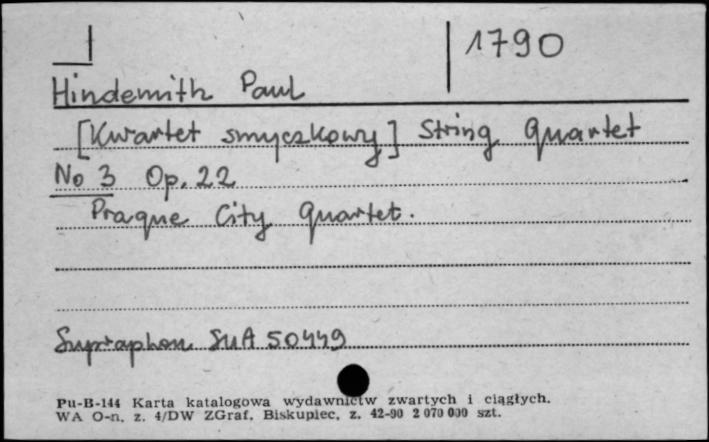 1790
Hindemith Paul
[Kwartet smyczkowy] String Quartet
No 3 Op. 22
Prague City Quartet.
Supraphon SUA 50449
Pu-B-144 Karta katalogowa wydawnictw zwartych i ciągłych.
WA O-n. z. 4/DW ZGraf. Biskupiec, z. 42-90 2 070 000 szt.